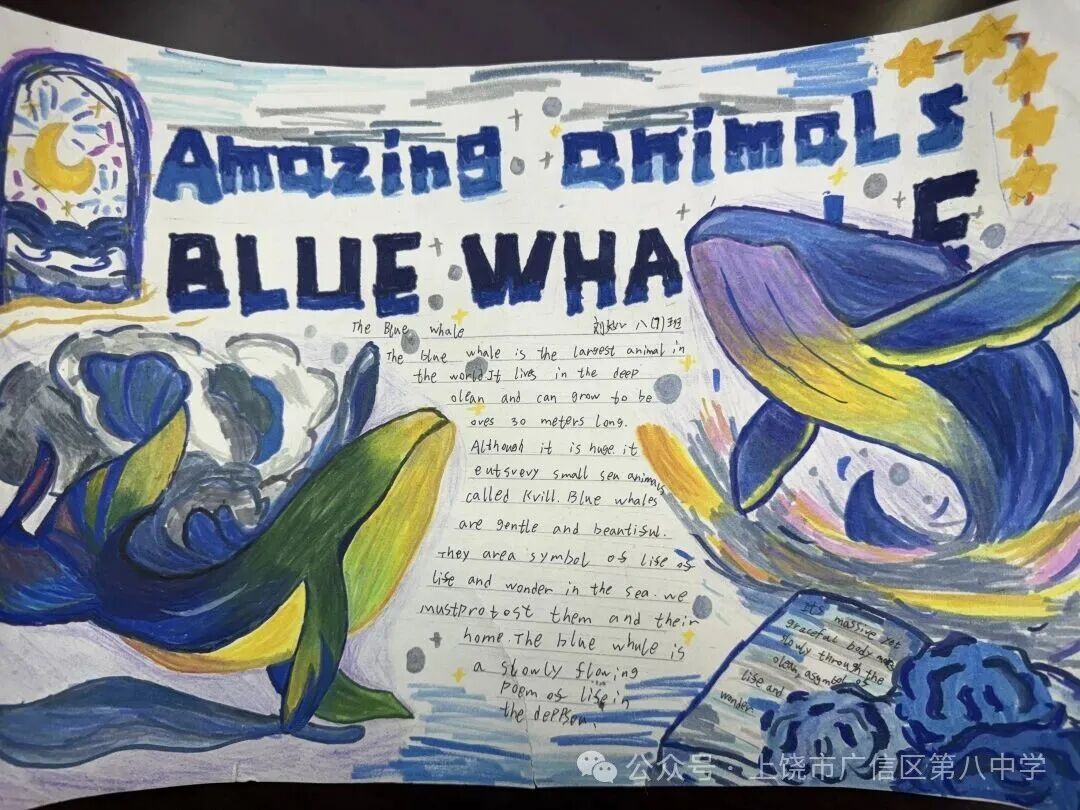 Amazing animals
BLUE WHALE
The Blue whale 八(7)班
The blue whale is the largest animal in
the world.It lives in the deep
olean and can grow to be
oves 30 meters long.
Although it is huge it
eutsvevy small sea animals
called Kvill. Blue whales
are gentle and beautiful.
They area symbol of life of
life and wonder in the sea. we
mustprotost them and their
home. The blue whule is
a slowly flowing
poem of life in
the deep
Its massive yet
graceful body
slowly through the
olean, asymbol of
life and
wonder
公众号 · 上饶市广信区第八中学